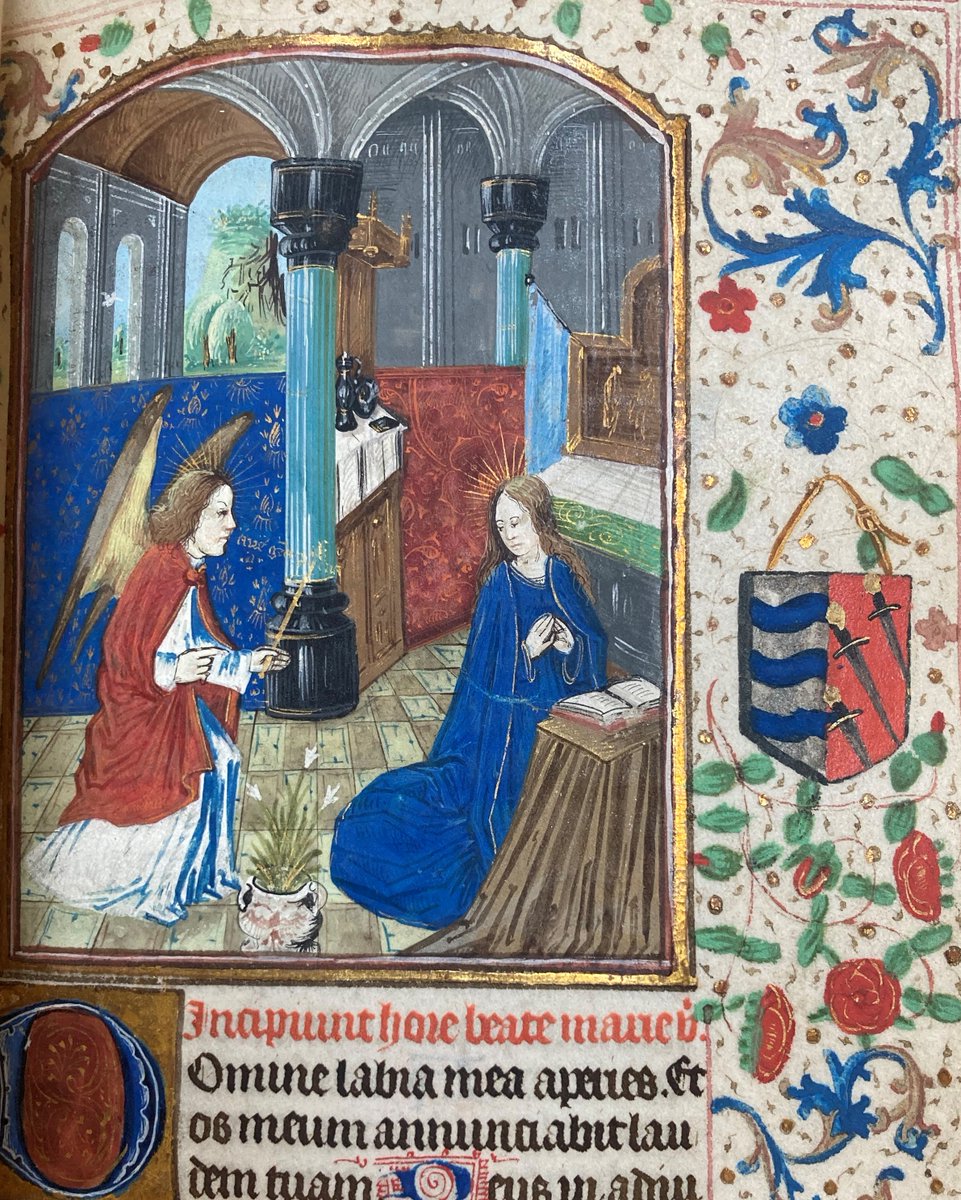 Incipiunt hore beate marie v.
Domine labia mea aperies. Et
os meum annunciabit lau
dem tuam Deus in adiu